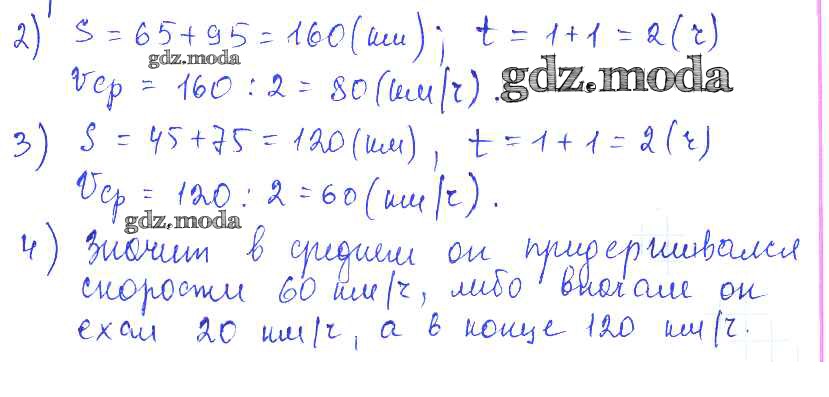 2) S = 65 + 95 = 160 (км); t = 1 + 1 = 2 (ч)
gdz.moda
Vср = 160 : 2 = 80 (км/ч).
gdz.moda
3) S = 45 + 75 = 120 (км), t = 1 + 1 = 2 (ч)
Vср = 120 : 2 = 60 (км/ч).
gdz.moda
4) Значит в среднем он придерживался
скорости 60 км/ч, либо вначале он
ехал 20 км/ч, а в конце 120 км/ч.